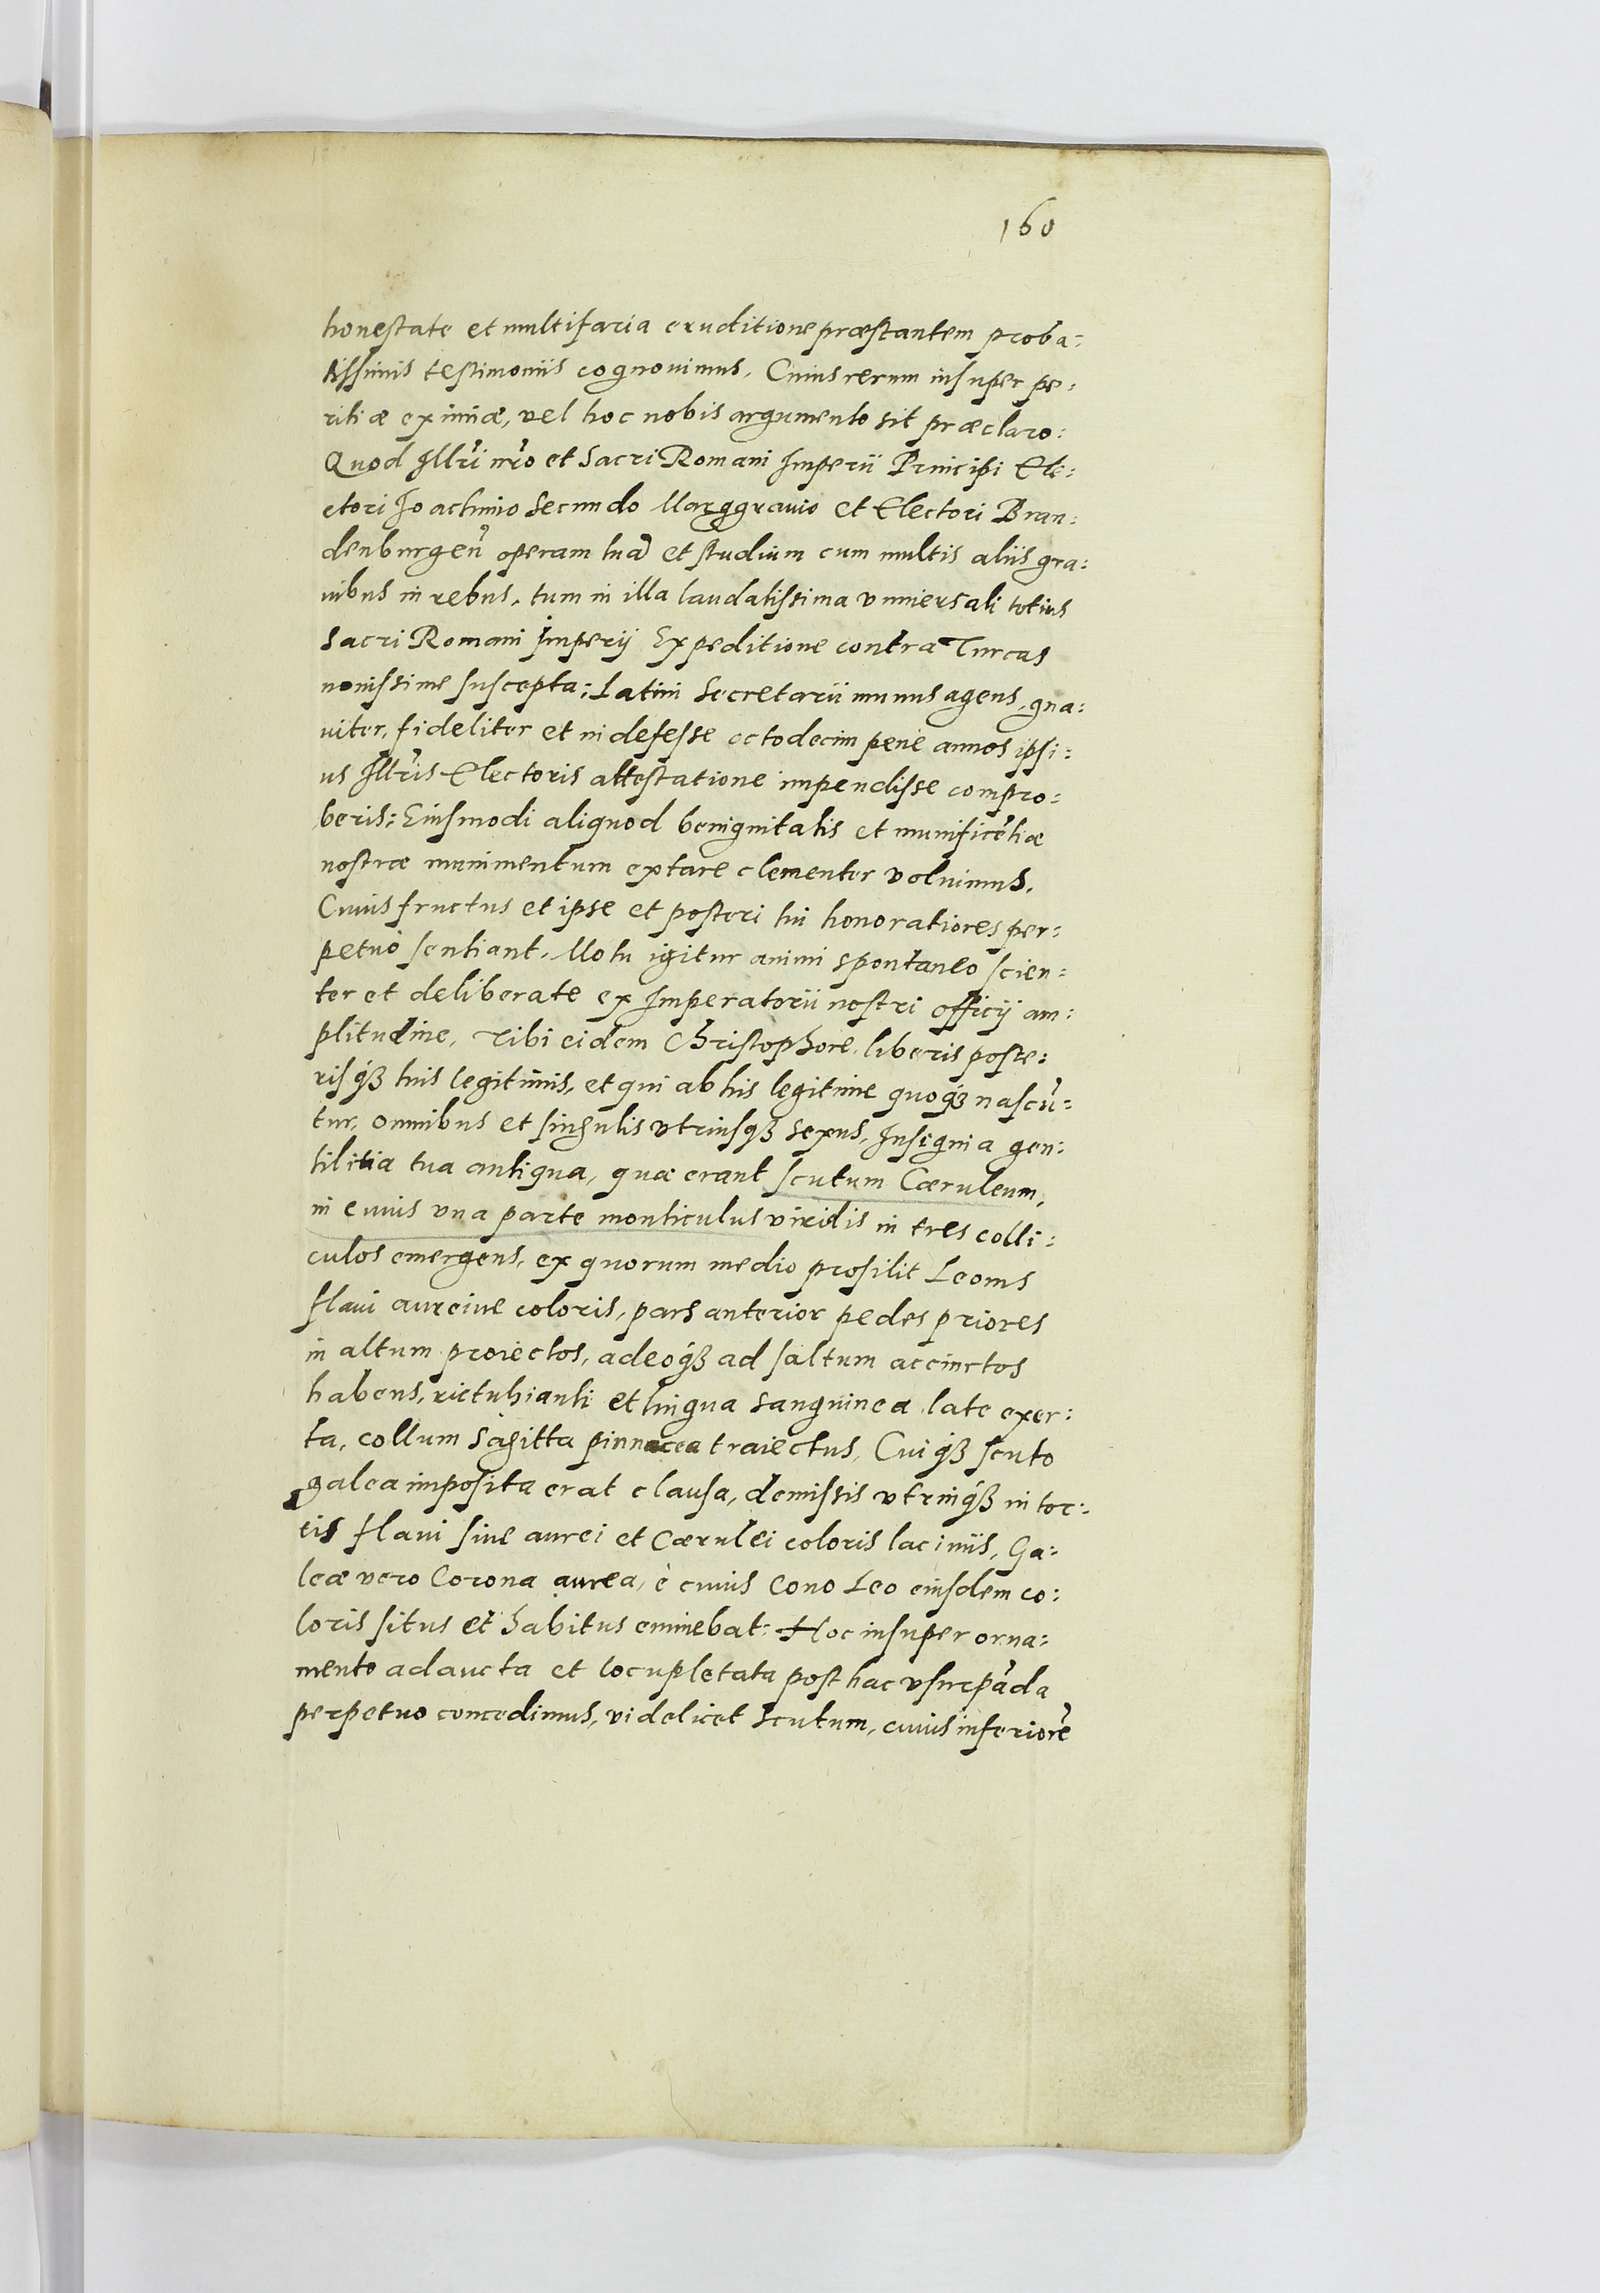 160
honestate et multifaria eruditione præstantem proba=
tissimis testimoniis cognouimus. Cuius rerum insuper pe=
ritiæ eximiæ, vel hoc nobis argumento sit præclaro:
Quod Illri nro et Sacri Romani Imperii Principi Ele=
ctori Joachimo Secundo Marggrauio et Electori Bran=
denburgen operam tuã et studium cum multis aliis gra=
uibus in rebus, tum in illa laudatissima vniuersali totius
Sacri Romani Imperij Expeditione contra Turcas
nouissime suscepta; Latini Secretarii munus agens, gna=
uiter, fideliter et indefesse octodecim pene annos ipsi=
us Illris Electoris attestatione impendisse compro=
beris; Eiusmodi aliquod benignitatis et munificẽtiæ
nostræ munimentum extare clementer voluimus.
Cuius fructus et ipse et posteri tui honoratiores per=
petuò sentiant. Motu igitur animi spontaneo scien=
ter et deliberate ex Imperatorii nostri officij am=
plitudine, Tibi eidem Christophore liberis poste=
risqȝ tuis legitimis, et qui ab his legitime quoqȝ nascũ=
tur, omnibus et singulis vtriusqȝ sexus, Insignia gen=
tilitia tua antiqua, quæ erant scutum Cæruleum,
in cuius vna parte monticulus viridis in tres colli=
culos emergens, ex quorum medio prosilit Leonis
flaui aureiue coloris, pars anterior pedes priores
in altum proiectos, adeoqȝ ad saltum accinctos
habens, rictu hianti et lingua sanguinea late exer=
ta, collum sagitta pinnacea traiectus, Cuiqȝ scuto
galea imposita erat clausa, demissis vtrinqȝ in tor=
tis flaui siue aurei et Cærulei coloris laciniis, Ga=
leæ vero Corona aurea, è cuius Cono Leo eiusdem co=
loris situs et habitus eminebat: Hoc insuper orna=
mento adaucta et locupletata posthac vsurpãda
perpetuo concedimus, videlicet Scutum, cuius inferiorẽ